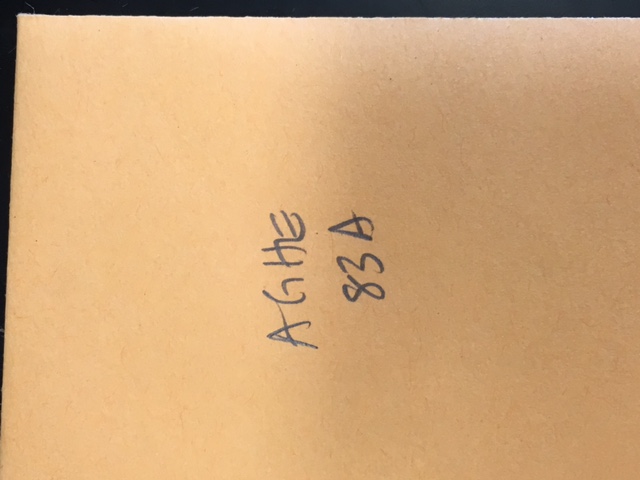 AGHE
83A